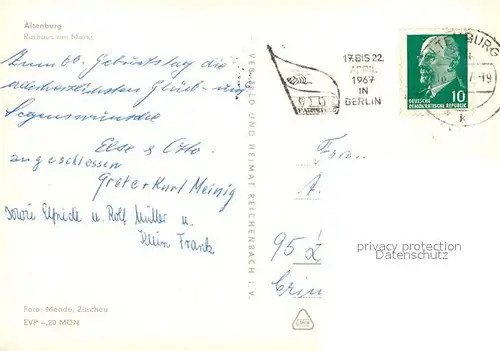 Altenburg
Rathaus am Markt
Zum 60. Geburtstag die
allerherzlichsten Glück- und
Segenswünsche
Else & Otto.
angeschlossen
Grete u Kurt Meinig
sowie Elfriede u. Rolf Müller u.
Klein Frank
Foto: Mende, Zürchau
EVP -,20 MDN
VERLAG BILD UND HEIMAT REICHENBACH I. V.
17. BIS 22.
APRIL
1967
IN
BERLIN
SED
PARTEITAG
ALTENBURG
10
DEUTSCHE
DEMOKRATISCHE REPUBLIK
Frau
A.
95 Z
Crim
privacy protection
Datenschutz